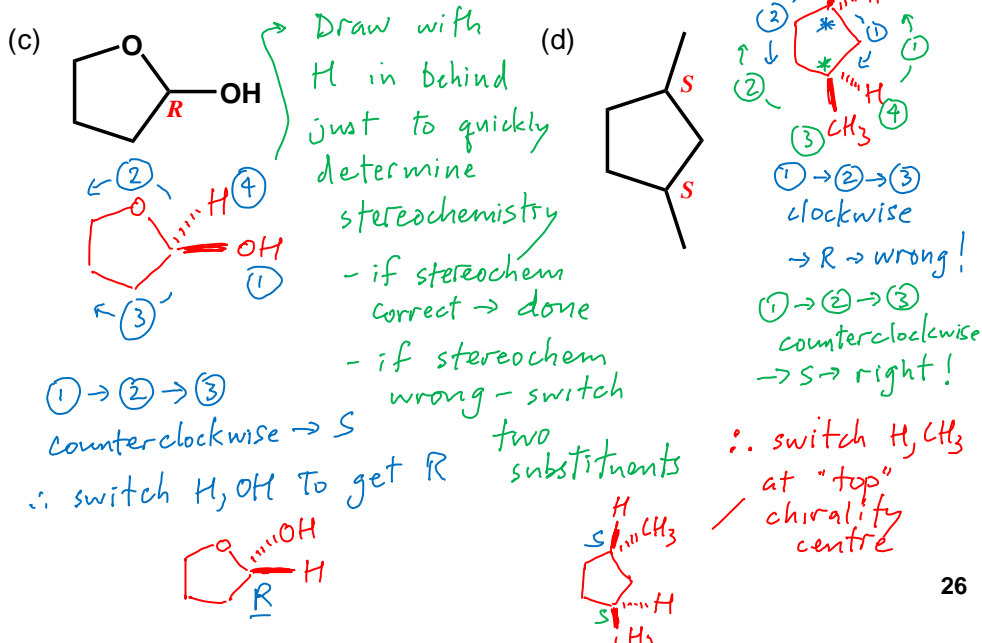 (c)
O
OH
R
② 
O
H ④
OH
①
③
① → ② → ③
counterclockwise → S
∴ switch H, OH To get R
O
OH
H
R
Draw with
H in behind
just to quickly
determine
stereochemistry
- if stereochem
correct → done
- if stereochem
wrong - switch
two
substituents
(d)
S
S
②
*
①
①
*
②
H
④
③
CH3
① → ② → ③
clockwise
→ R → wrong!
① → ② → ③
counterclockwise
→ S → right!
∴ switch H, CH3
at "top"
chirality
centre
H
S
CH3
S
H
26